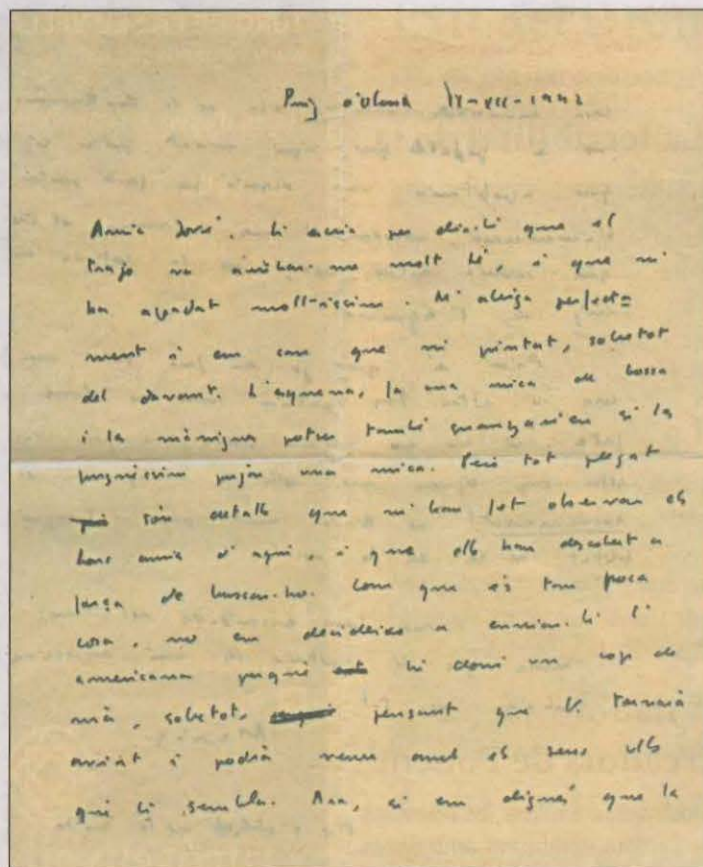 Puig d'Olena IX-XII-1942
Amic José, li escric per dir-li que el
trajo va arribar-me molt bé, i que m'
ha agradat molt-íssim. M'abriga perfecta=
ment i em cau que ni pintat, sobretot
del davant. L'esquena, fa una mica de bossa
i les mànigues potser també guanyarien si les
poguéssim pujar una mica. Però tot plegat
són detalls que m'han fet observar els
bons amics d'aquí, i que ells han descobert a
força de buscar-ho. Com que és tan poca
cosa, no em decideixo a enviar-li l'
americana perquè hi doni un cop de
mà, sobretot, pensant que V. tornarà
aviat i podrà veure amb els seus ulls
què li sembla. Ara, si em digués que la